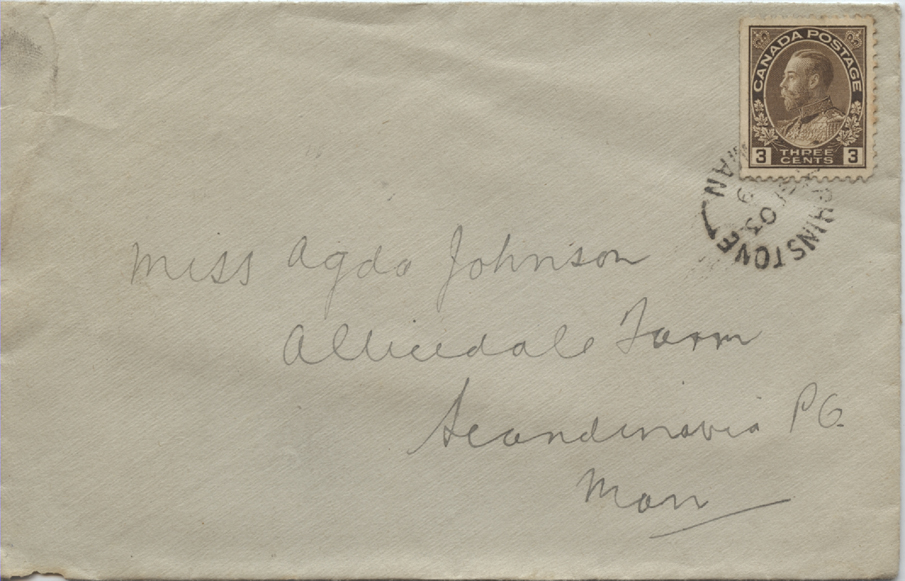 CANADA POSTAGE
3 THREE CENTS 3
PHINSTONE
MAN
03
Miss Agda Johnson
Farm
Scandinavia P.O.
Man